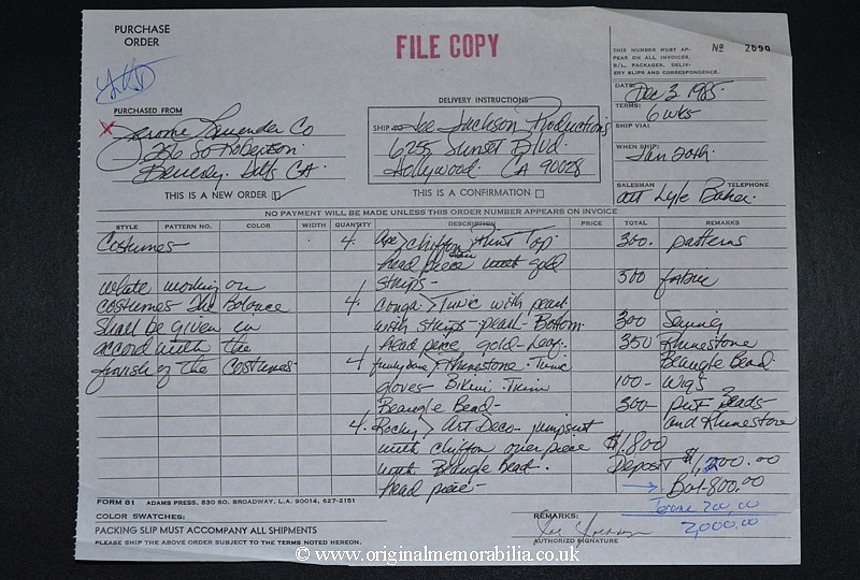 PURCHASE
ORDER
FILE COPY
THIS NUMBER MUST AP-
PEAR ON ALL INVOICES,
B/L, PACKAGES, DELIV-
ERY SLIPS AND CORRESPONDENCE.
No 2090
PURCHASED FROM
Jerome Lavender Co
256 So Robertson
Beverly Hills CA.
THIS IS A NEW ORDER
DELIVERY INSTRUCTIONS
SHIP TO Joe Jackson Productions
6255 Sunset Blvd.
Hollywood. CA 90028
THIS IS A CONFIRMATION
DATE: Dec 3 1985
TERMS: 6 wks
SHIP VIA:
WHEN SHIP: Jan 20th
SALESMAN TELEPHONE
att Lyle Baker.
NO PAYMENT WILL BE MADE UNLESS THIS ORDER NUMBER APPEARS ON INVOICE
STYLE PATTERN NO. COLOR WIDTH QUANTITY DESCRIPTION PRICE TOTAL REMARKS
Costumes 4. chiffon Print Top 300. patterns
head piece with gold
straps- 500 fabric
while working on
costumes The Balance 4. Conga > Tunic with pearl
shall be given in with straps-pearl-Bottom 300 Sewing
accord with the head piece gold-Leaf. 350 Rhinestone
finish of the Costumes 4 > Rhinestone. Tunic Beangle Bead
gloves- Bikini Trim 100- Wigs
Beangle Bead- 300 Put Beads-
4. Rocky > Art Deco-jumpsuit and Rhinestone
with chiffon over piece $1,800
with Beangle Bead. Deposit $1,200.00
head piece- → Bal-800.00
200,00
2,000.00
FORM 81 ADAMS PRESS, 830 SO. BROADWAY, L.A. 90014, 627-2151
COLOR SWATCHES:
PACKING SLIP MUST ACCOMPANY ALL SHIPMENTS
PLEASE SHIP THE ABOVE ORDER SUBJECT TO THE TERMS NOTED HEREON.
REMARKS:
Joe Jackson
AUTHORIZED SIGNATURE
© www.originalmemorabilia.co.uk